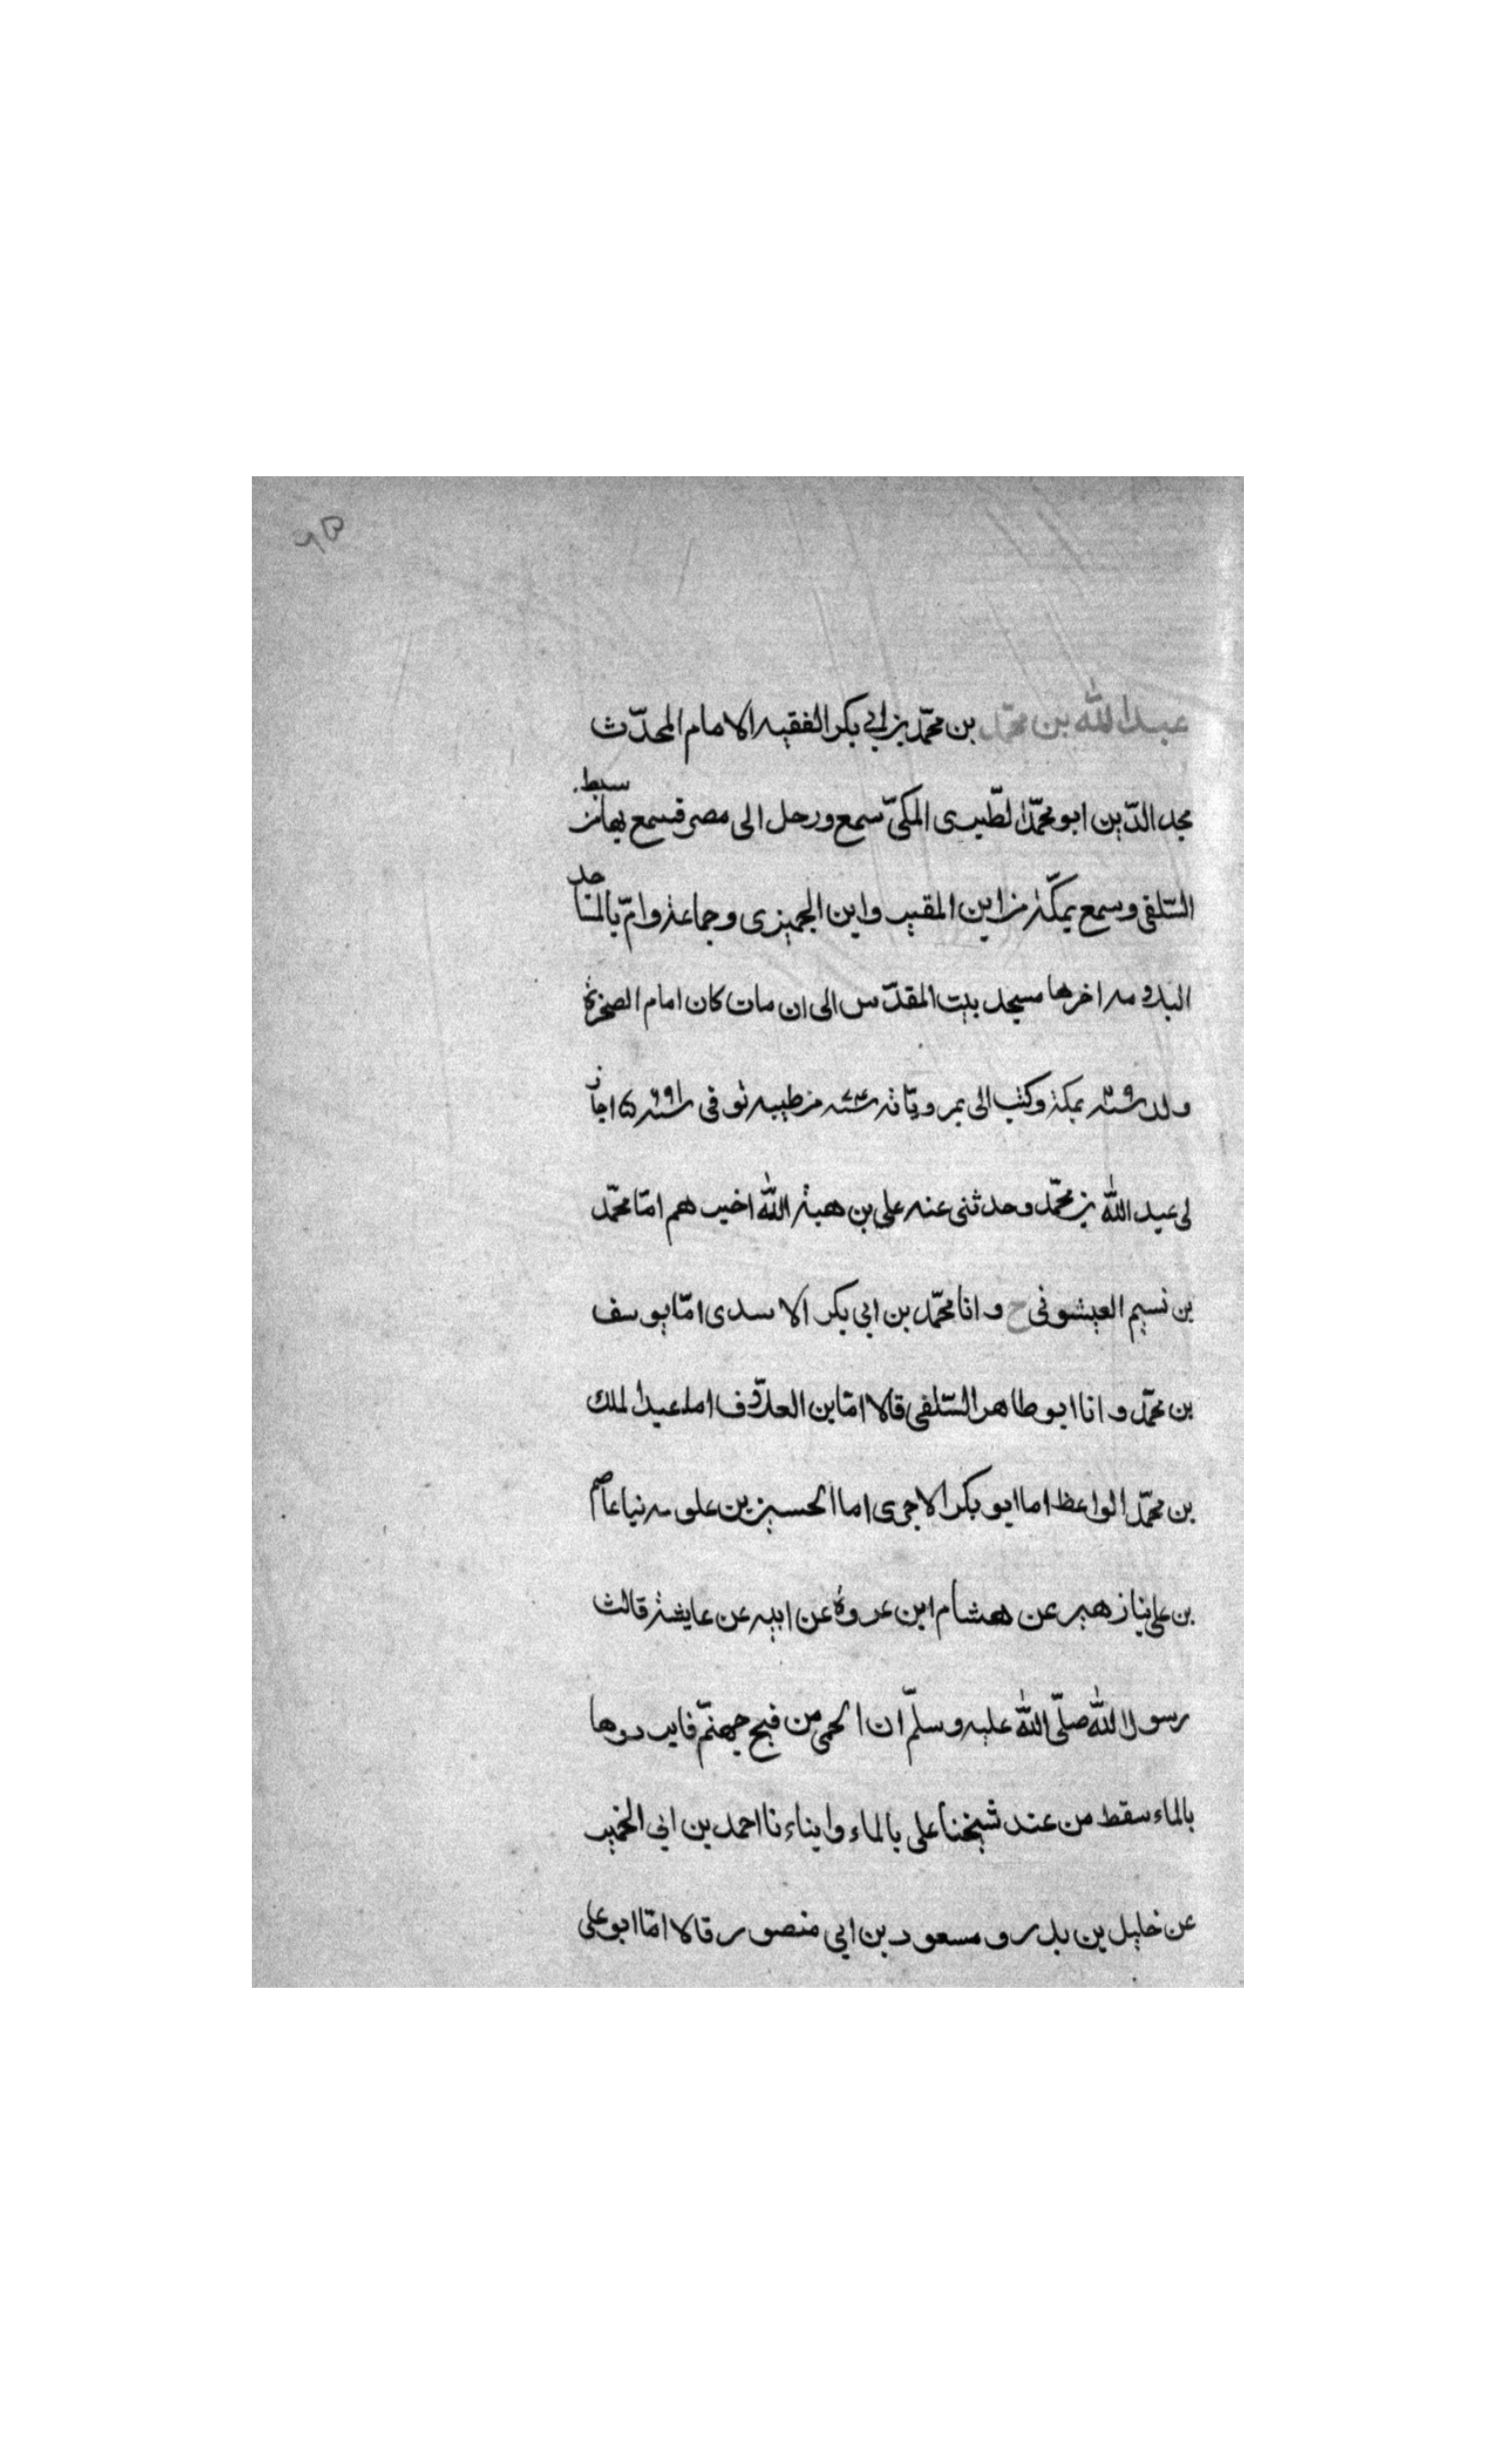 عبد الله بن محمّد بن محمّد بن ابي بكر الفقيه الامام المحدّث
مجد الدّين ابو محمّد الطّبرى المكىّ سمع ورحل الى مصر فسمع بها من سبط
السّلفى وسمع بمكّة من ابن المقير وابن الجميزى وجماعة وامّ بالمساجد
اخرها مسجد بيت المقدّس الى ان مات كان امام الصخرة
ولد سنة ٢٩ بمكة وكتب الى بمروياته سنة من طيبه توفى سنة ٦٩١ اجاز
لى عبد الله بن محمّد وحدثنى عنه على بن هبة الله اخبرهم امّا محمّد
بن نسيم العيشونى ح و انا محمّد بن ابى بكر الاسدى امّا يوسف
بن محمّد و انا ابو طاهر السّلفى قالا امّا بن العلاّف اما عبد الملك
بن محمّد الواعظ اما ابو بكر الاجرى اما الحسين بن علوسه نبا عاصم
بن على نبا زهير عن هشام ابن عروة عن ابيه عن عايشة قالت
رسول الله صلّى الله عليه وسلّم ان الحمى من فيح جهنّم فابردوها
بالماء سقط من عند شيخنا على بالماء وابناءنا احمد بن ابى الخير
عن خليل بن بدر و مسعود بن ابى منصور قالا امّا ابو على